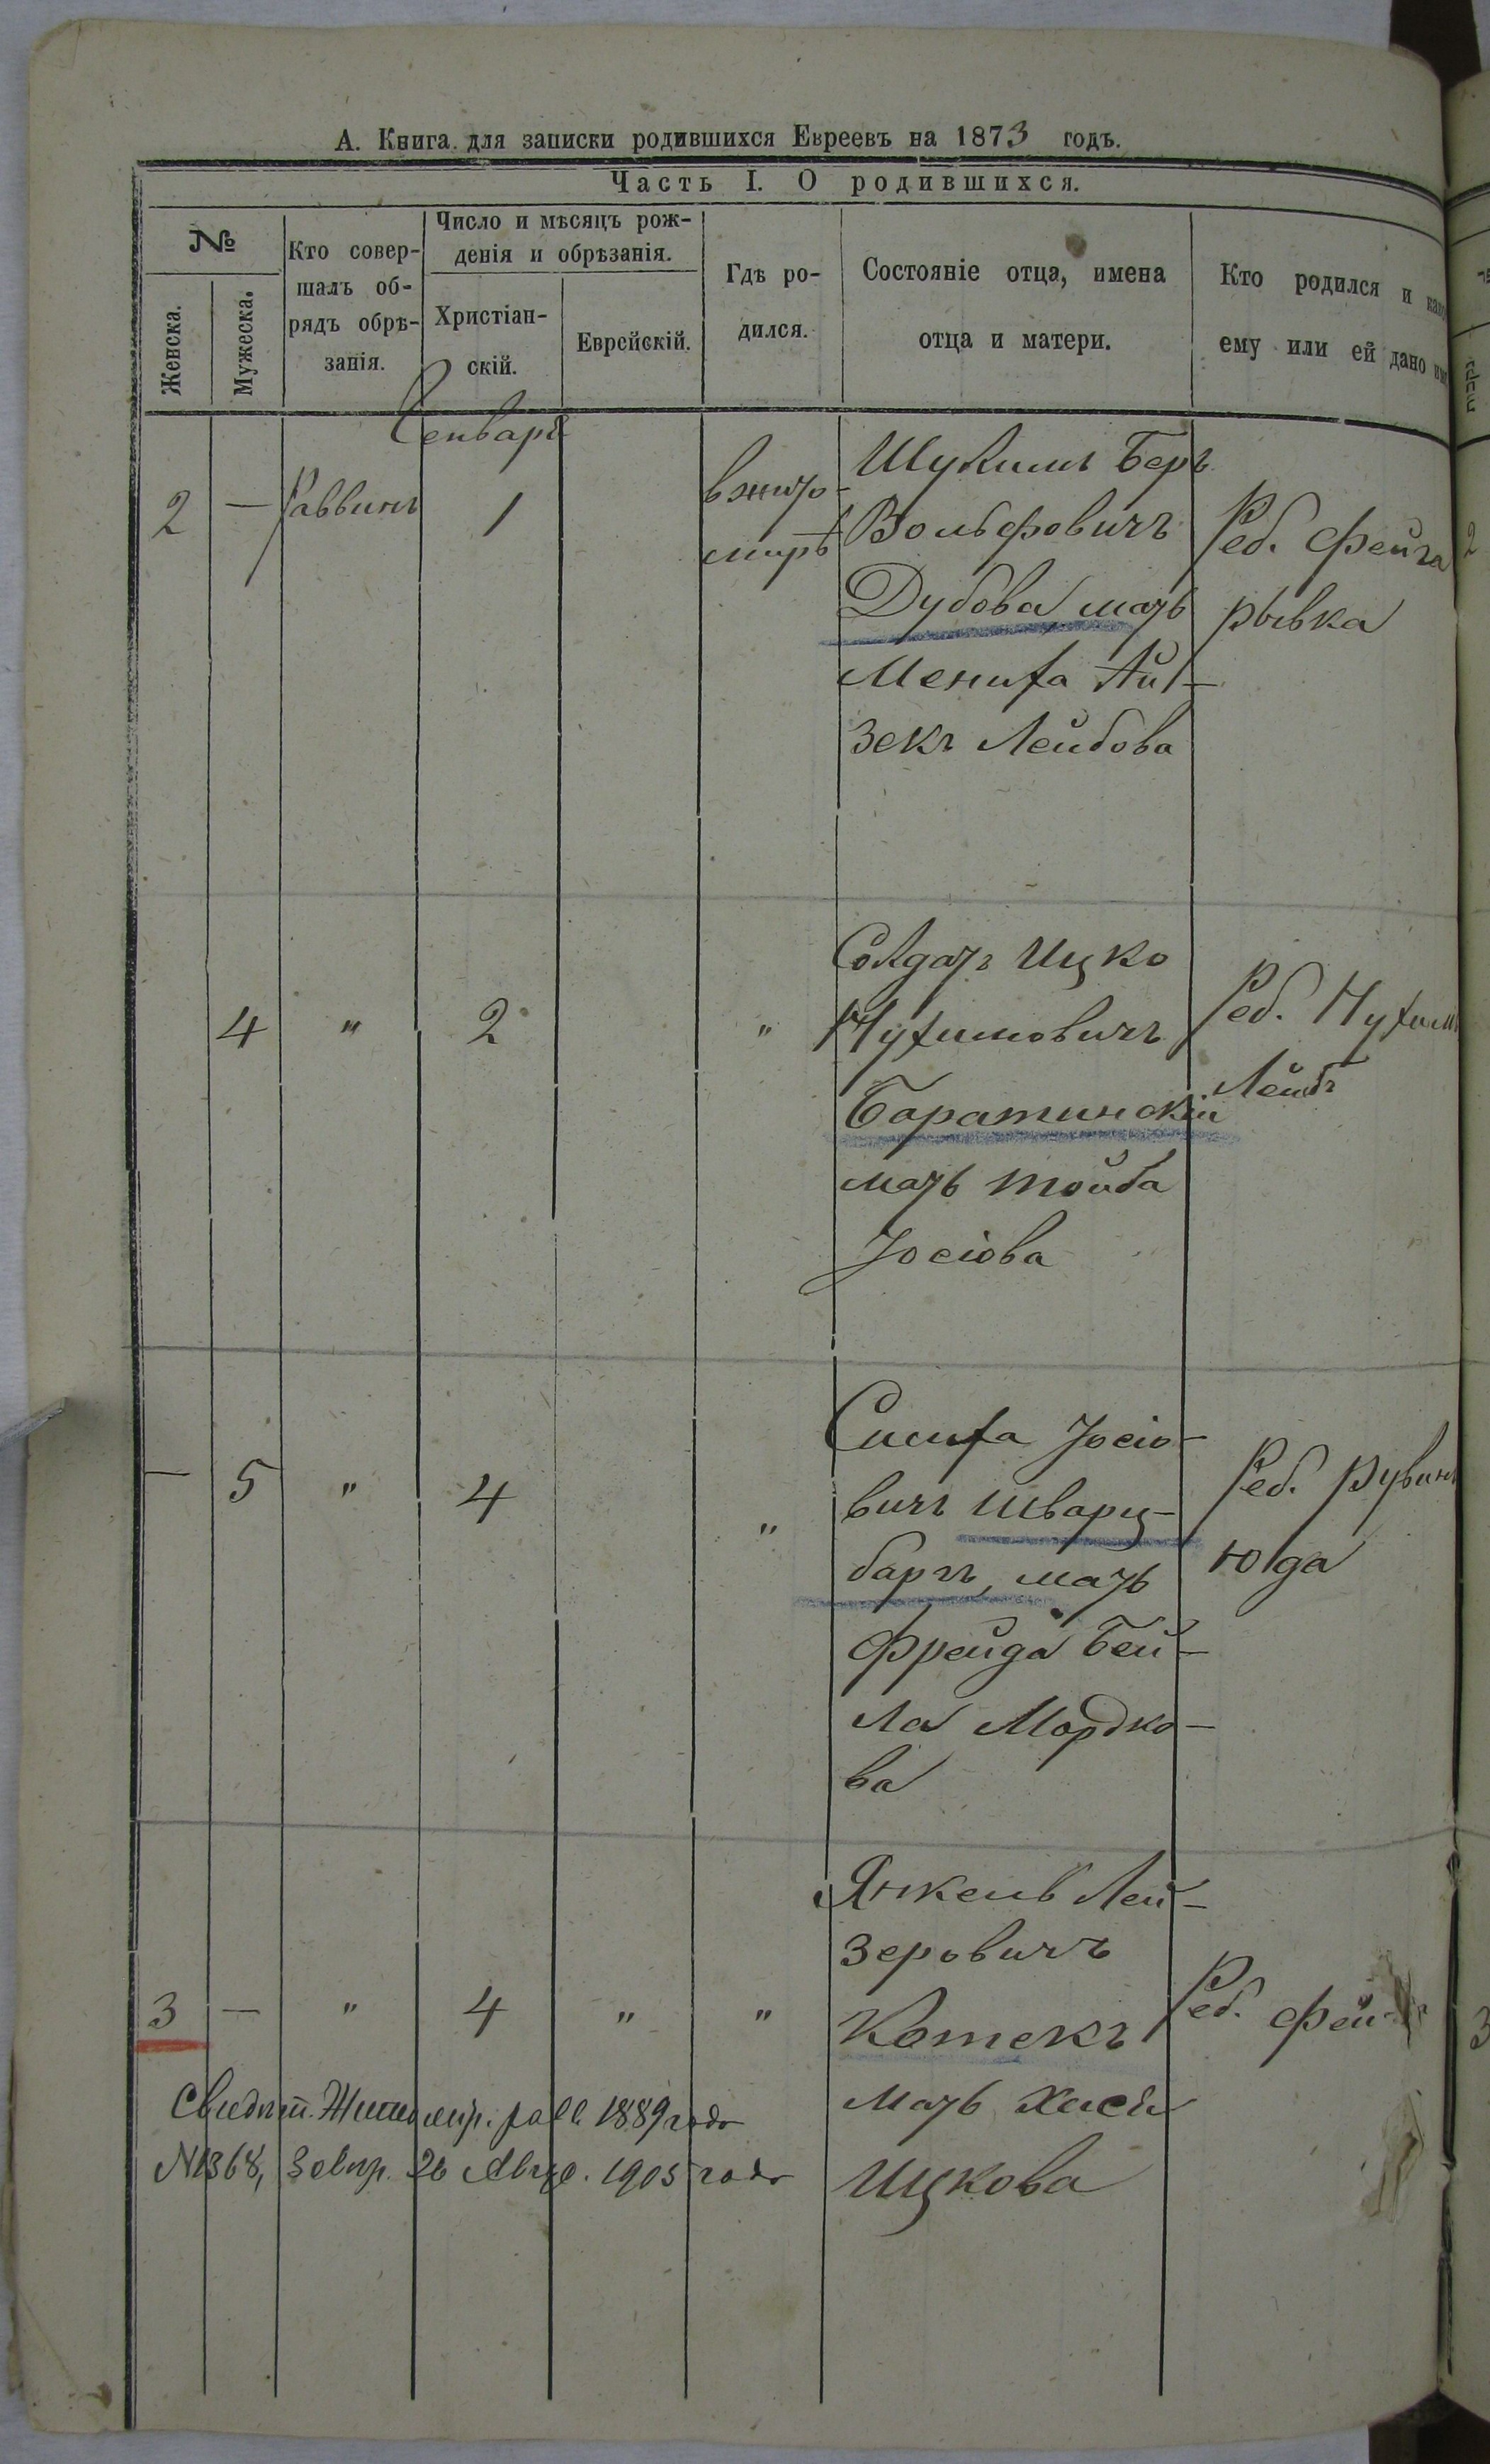 А. Книга для записки родившихся Евреевъ на 1873 годъ.
Часть I. О родившихся.
№
Женска.
Мужеска.
Кто совер-
шалъ об-
рядъ обрѣ-
занія.
Число и мѣсяцъ рож-
денія и обрѣзанія.
Христіан-
скій.
Еврейскій.
Гдѣ ро-
дился.
Состояніе отца, имена
отца и матери.
Кто родился и
ему или ей дано
Генваря
2 — Раввинъ 1
в жито-
мирѣ
Беръ
Вольфовичъ
Дубова мать
Мениха Ай-
зекъ Лейбова
Реб. Фейга
рывка
2
4 " 2 "
Солдатъ Ицко
Нухимовичъ
Баратинскій
мать тойба
Іосіова
Реб. Нухимъ
Лейбъ
— 5 " 4 "
Симха Іосіо-
вичъ Шварц-
баргъ, мать
Фрейда Бей-
ла Мордко-
ва
Реб. Рувинъ
Юда
3 — " 4 " "
Янкель Лей-
зеровичъ
Котекъ
мать Хася
Ицкова
Реб. Фей
3
Свидѣт. Житомир. равв. 1889 года
N 1368, 26 Авгу. 1905 года